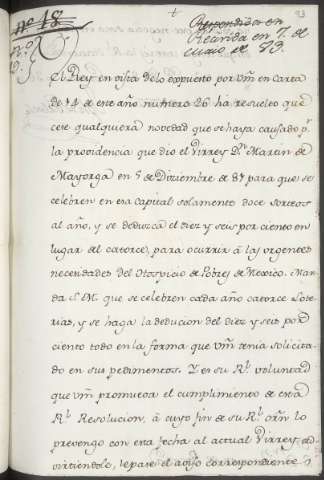 nº 18.
nº
19.
Respondida en
Recivida en 7. de
de 83.
El Rey en vista de lo expuesto por Vm en carta
de 14 de este año número 26 ha resuelto que
cese qualquiera novedad que se haya causado pʳ
la providencia que dio el Virrey Dⁿ Martin de
Mayorga en 5 de Diziembre de 81 para que se
celebren en esa Capital solamente doce sorteos
al año, y se deduzca el diez y seis por ciento en
lugar del catorce, para ocurrir á las urgentes
necesidades del Hospicio de Pobres de Mexico. Man
da S. M. que se celebren cada año catorce Lote
rias, y se haga la deducion del diez y seis por
ciento todo en la forma que Vm tenia solicita
do en sus pedimentos. Y en su Rˡ voluntad
que Vm promueva el cumplimiento de esta
Rˡ Resolucion, á cuyo fin de su Rˡ orⁿ lo
prevengo con esta fecha al actual Virrey, ad
virtiendole, le pase el aviso correspondiente